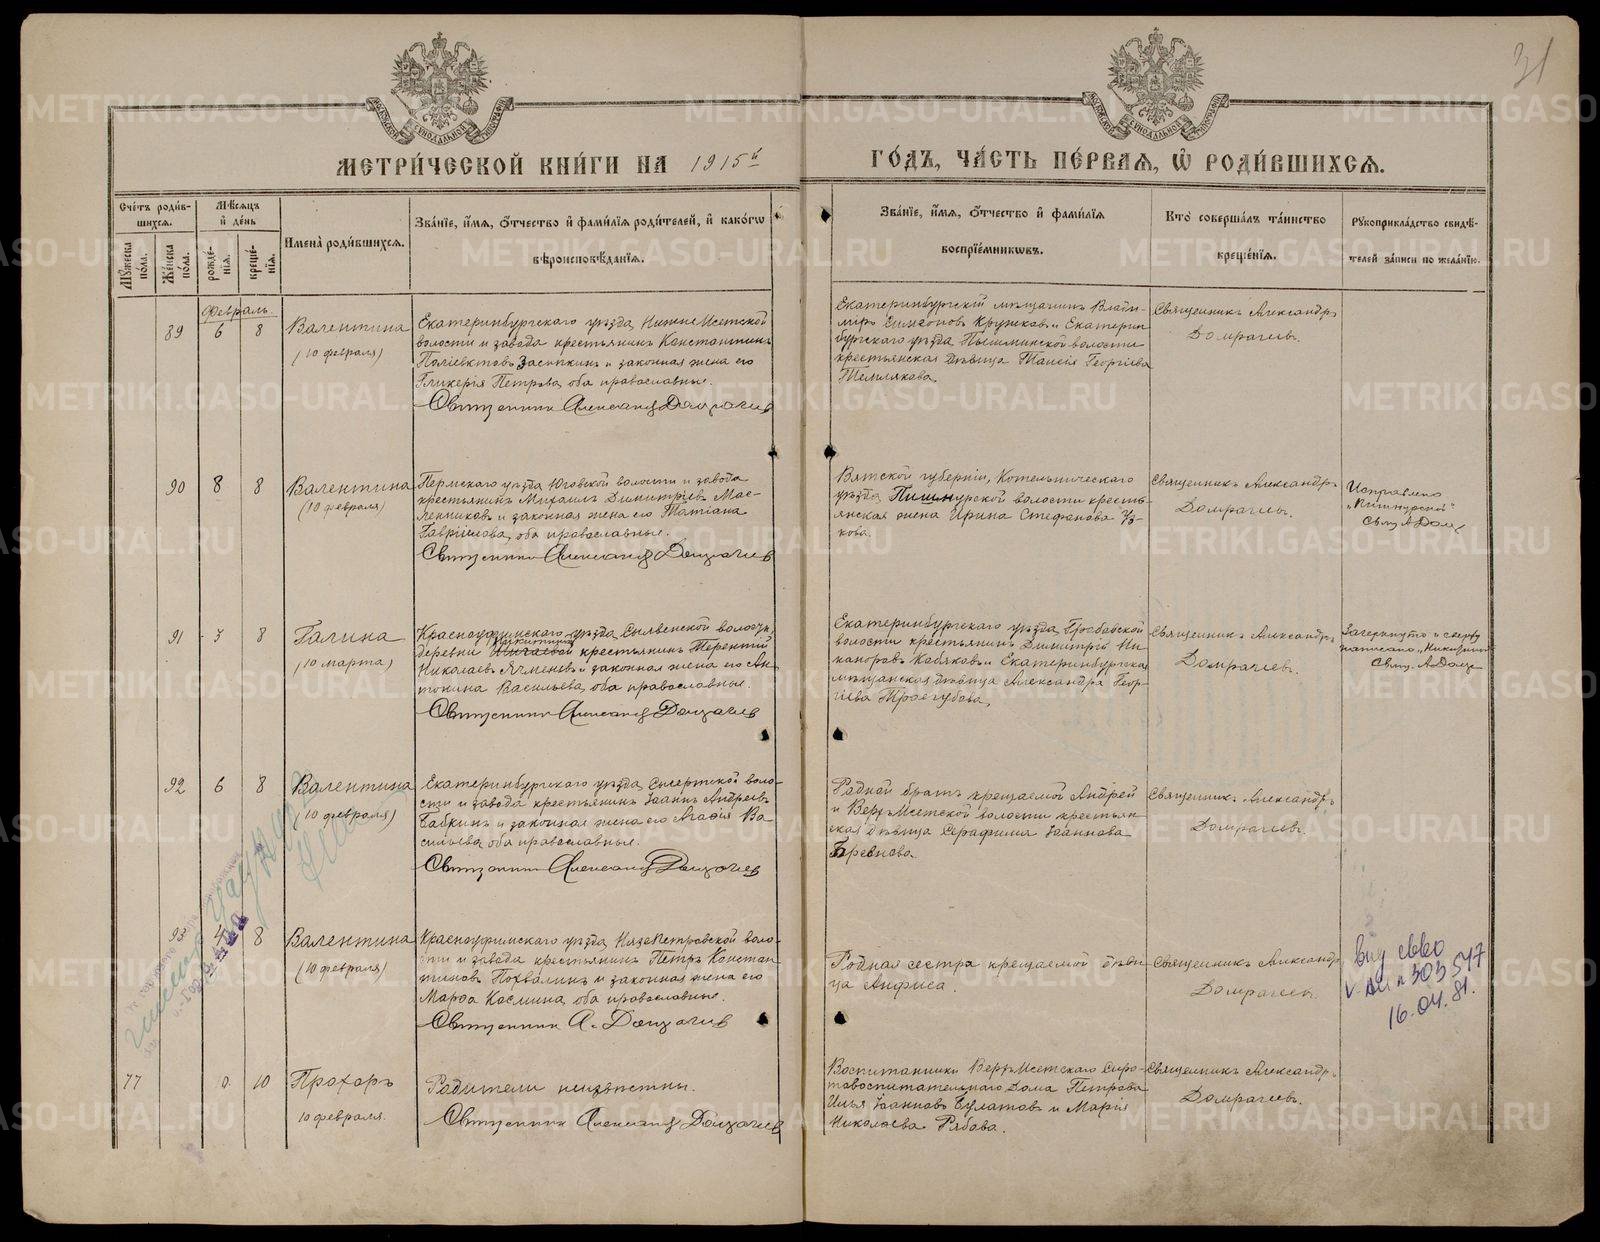 31
МЕТРИ́ЧЕСКОЙ КНИ́ГИ НА 1915й ГО́ДЪ, ЧА́СТЬ ПЕ́РВАѦ, Ѿ РОДИ́ВШИХСѦ.
Сче́тъ роди́в-
шихсѧ.
Мꙋ́жеска по́ла.
Же́нска по́ла.
Мѣ́сѧцъ
и́ де́нь
рожде́-
нїѧ.
креще́-
нїѧ.
Имена̀ роди́вшихсѧ.
Зва́нїе, и́мѧ, ѻ́тчество и́ фами́лїѧ роди́телей, и́ како́гѡ
вѣроисповѣ́данїѧ.
Зва́нїе, и́мѧ, ѻ́тчество и́ фами́лїѧ
воспрїе́мникѡвъ.
Кто̀ соверша́лъ та́инство
креще́нїѧ.
Рꙋкоприкла́дство свидѣ́-
телей за́писи по жела́нїю.
Февраль
89 6 8
Валентина
(10 февраля)
Екатеринбургскаго уѣзда, Нижне Исетской
волости и завода крестьянинъ Константинъ
Поліевктовъ Засыпкинъ и законная жена его
Гликерія Петрова, оба православные.
Священникъ Александръ Домрачевъ
Екатеринбургскій мѣщанинъ Влади-
міръ Симеоновъ Кружковъ и Екатерин
бургскаго уѣзда Пышминской волости
крестьянская дѣвица Таисія Георгіева
Темлякова.
Священникъ Александръ
Домрачевъ.
90 8 8
Валентина
(10 февраля)
Пермскаго уѣзда Юговской волости и завода
крестьянинъ Михаилъ Димитріевъ Мас-
ленниковъ и законная жена его Татіана
Гавріилова, оба православные.
Священникъ Александръ Домрачевъ
Вятской губерніи, Котельническаго
уѣзда Пишнурской волости кресть-
янская жена Ирина Стефанова
кова.
Священникъ Александръ
Домрачевъ.
Исправлено
„Пишнурской"
Свящ. А Дом
91 3 8
Галина
(10 марта)
Красноуфимскаго уѣзда Сылвенской волости,
деревни крестьянинъ Терентій
Николаевъ Ячменевъ и законная жена его Ан-
тонина Васильева, оба православные.
Священникъ Александръ Домрачевъ
Екатеринбургскаго уѣзда Гробовской
волости крестьянинъ Димитрій Ни-
каноровъ Кобяковъ и Екатеринбургская
мѣщанская дѣвица Александра Геор-
гіева Трегубова.
Священникъ Александръ
Домрачевъ.
Зачеркнуто и сверху
написано
Свящ. А Дом
92 6 8
Валентина
(10 февраля)
Екатеринбургскаго уѣзда Сысертской воло-
сти и завода крестьянинъ Іоаннъ Андреевъ
Бабкинъ и законная жена его Агафія Ва-
сильева, оба православные.
Священникъ Александръ Домрачевъ
Родной братъ крещаемой Андрей
и Верхъ Исетской волости крестьян-
ская дѣвица Серафима Іоаннова
Бревнова.
Священникъ Александръ
Домрачевъ.
93 4 8
Валентина
(10 февраля)
Красноуфимскаго уѣзда Нязепетровской воло-
сти и завода крестьянинъ Петръ Констан
тиновъ Похвалинъ и законная жена его
Марфа Космина, оба православные.
Священникъ А. Домрачевъ
Родная сестра крещаемой дѣви
ца Анфиса.
Священникъ Александръ
Домрачевъ
выд св-во
V-АИ № 303547
16.04.81.
77 10
Прохоръ
10 февраля.
Родители неизвѣстны.
Священникъ Александръ Домрачевъ
Воспитанники Верхъ Исетскаго Сиро-
товоспитательнаго Дома Петрова
Илья Іоанновъ Булатовъ и Марія
Николаева Рябова.
Священникъ Александръ
Домрачевъ.
METRIKI.GASO-URAL.RU